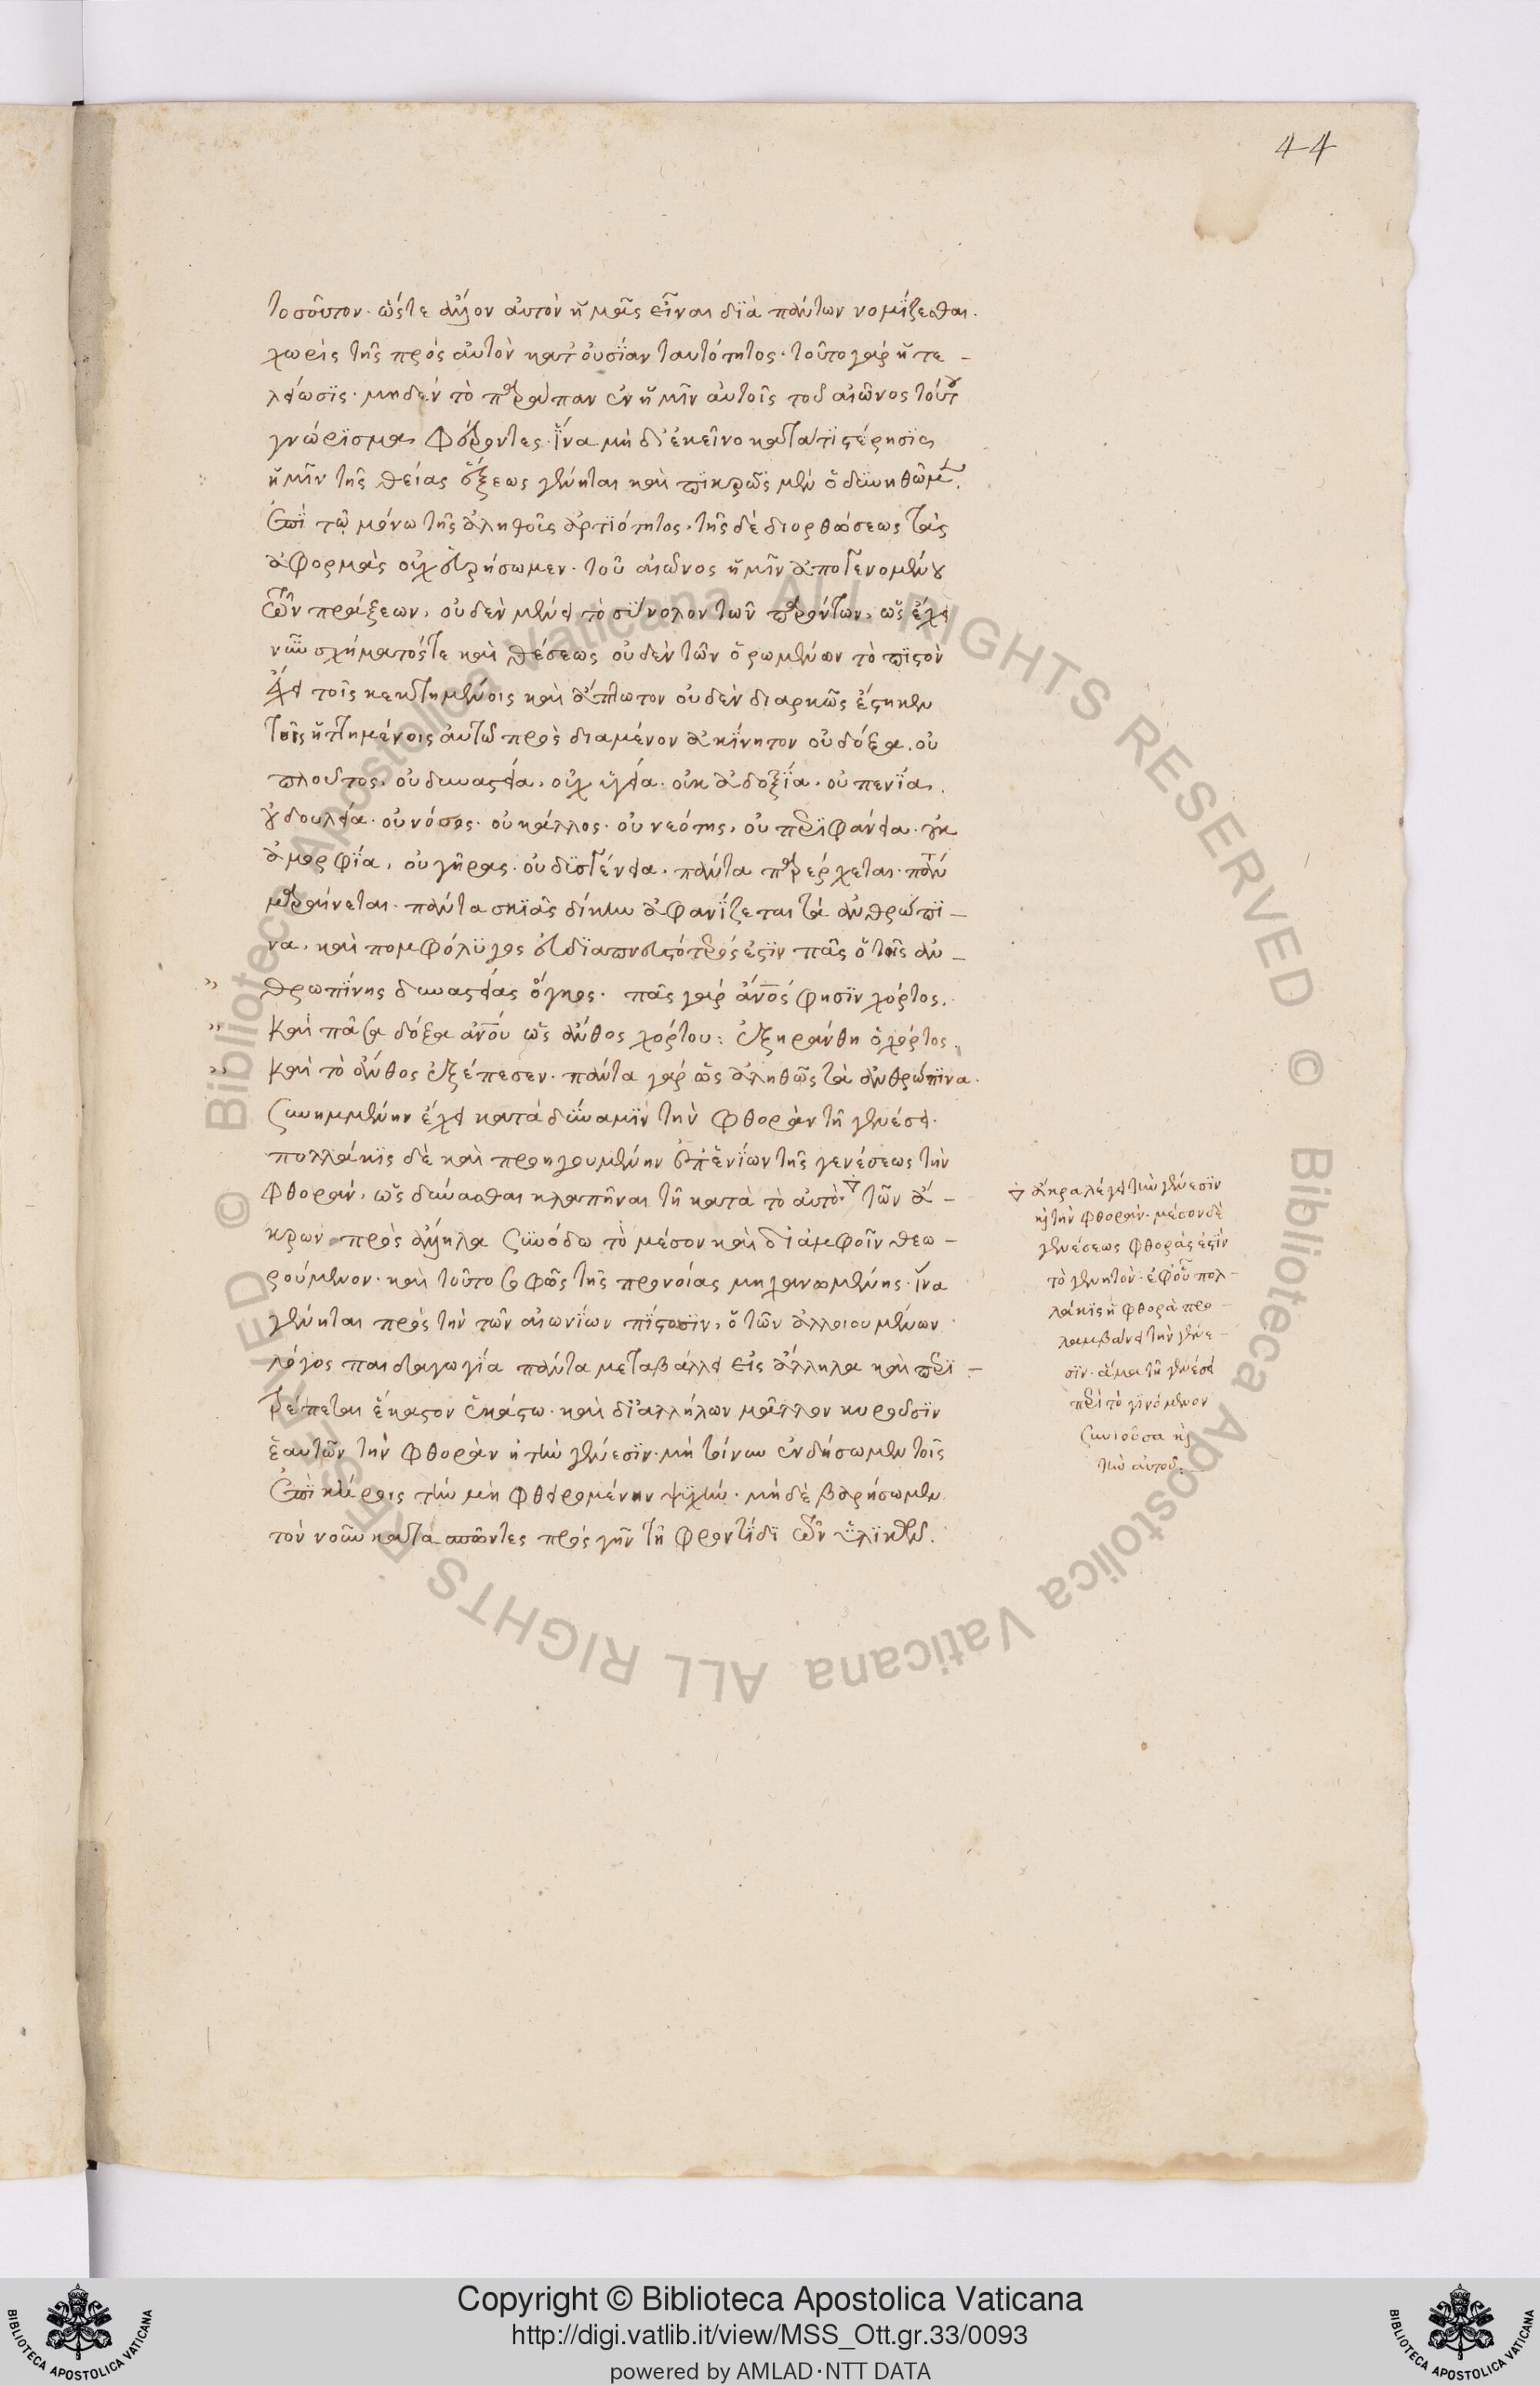 44
τοσοῦτον· ὥστε ἄλλον αὐτὸν ἡμᾶς εἶναι διὰ πάντων νομίζεσθαι·
χωρὶς τῆς πρὸς αὐτὸν κατ' οὐσίαν ταυτότητος· τοῦτο γὰρ ἡ τε-
λείωσις· μηδὲν τὸ παράπαν ἐν ἡμῖν αὐτοῖς τοῦ αἰῶνος τούτου
γνώρισμα φέροντες· ἵνα μὴ δι' ἐκεῖνο κατάτι στέρησις
ἡμῖν τῆς θείας ἕξεως γένηται καὶ πικρῶς μὲν ὀδυνηθῶμεν.
ἐπὶ τῷ μόνω τῆς ἀληθοῦς ἀρτιότητος· τῆς δὲ διορθώσεως τὰς
ἀφορμὰς οὐχ εὑρήσωμεν· τοῦ αἰῶνος ἡμῖν ἀπογενομένου
τῶν πράξεων· οὐδὲν μένει τὸ σύνολον τῶν παρόντων, ὡς ἔχει
νῦν σχήματόστε καὶ θέσεως οὐδὲν τῶν ὁρωμένων τὸ πιστὸν
ἔχει τοῖς κεκτημένοις καὶ ἄπτωτον οὐδὲν διαρκῶς ἕστηκεν
τοῖς ἡττημένοις αὐτῶ πρὸς διαμένον ἀκίνητον οὐ δόξα· οὐ
πλοῦτος· οὐ δυναστεία· οὐχ ὑγεία· οὐκ ἀδοξία· οὐ πενία·
οὐ δουλεία· οὐ νόσος· οὐ κάλλος· οὐ νεότης· οὐ περιφάνεια· οὐκ
ἀμορφία· οὐ γῆρας· οὐ δυσγένεια· πάντα παρέρχεται· πάντα
μαραίνεται· πάντα σκιᾶς δίκην ἀφανίζεται τὰ ἀνθρώπι-
να· καὶ πομφόλυγος εὐδιαπνευστότερός ἐστιν πᾶς ὁ τῆς ἀν-
θρωπίνης δυναστείας ὄγκος· πᾶς γὰρ ἄνος φησὶν χόρτος·
καὶ πᾶσα δόξα ἀνου ὡς ἄνθος χόρτου: ἐξηράνθη ὁ χόρτος·
καὶ τὸ ἄνθος ἐξέπεσεν· πάντα γὰρ ὡς ἀληθῶς τὰ ἀνθρώπινα·
συνημμένην ἔχει κατὰ δύναμιν τὴν φθορὰν τῆ γενέσει·
πολλάκις δὲ καὶ προηγουμένην ἐπ' ἐνίων τῆς γενέσεως τὴν
φθοράν, ὡς δύνασθαι κλαπῆναι τῆ κατὰ τὸ αὐτὸ· τῶν ἄ-
κρων πρὸς ἄλληλα συνόδω τὸ μέσον καὶ δι' ἀμφοῖν θεω-
ρούμενον· καὶ τοῦτο σοφῶς τῆς προνοίας μηχανωμένης· ἵνα
γένηται πρὸς τὴν τῶν αἰωνίων πίστωσιν, ὁ τῶν ἀλλοιουμένων
λόγος παιδαγωγία πάντα μεταβάλλει εἰς ἄλληλα καὶ περι-
τρέπεται ἕκαστον ἑκάστω· καὶ δι' ἀλλήλων μᾶλλον κυροῦσιν
ἑαυτῶν τὴν φθορὰν ἢ τὴν γένεσιν· μὴ τοίνυν ἐνδήσωμεν τοῖς
ἐπικήροις τὴν μὴ φθειρομένην ψυχήν· μὴ δὲ βαρήσωμεν
τὸν νοῦν κατασπῶντες πρὸς γῆν τῆ φροντίδι τῶν ὑλικῶν.
ἄκρα λέγει τὴν γένεσιν
καὶ τὴν φθοράν· μέσον δὲ
γενέσεως φθορᾶς ἐστὶν
τὸ γενητὸν· ἐφ' οὗ πολ-
λάκις ἡ φθορὰ προ-
λαμβάνει τὴν γένε-
σιν· ἅμα τῆ γενέσει
περὶ τὸ γινόμενον
συνιοῦσα καὶ
τὴν αὐτοῦ:
Copyright © Biblioteca Apostolica Vaticana
http://digi.vatlib.it/view/MSS_Ott.gr.33/0093
powered by AMLAD·NTT DATA
BIBLIOTECA APOSTOLICA VATICANA
BIBLIOTECA APOSTOLICA VATICANA
© Biblioteca Apostolica Vaticana ALL RIGHTS RESERVED © Biblioteca Apostolica Vaticana ALL RIGHTS RESERVED